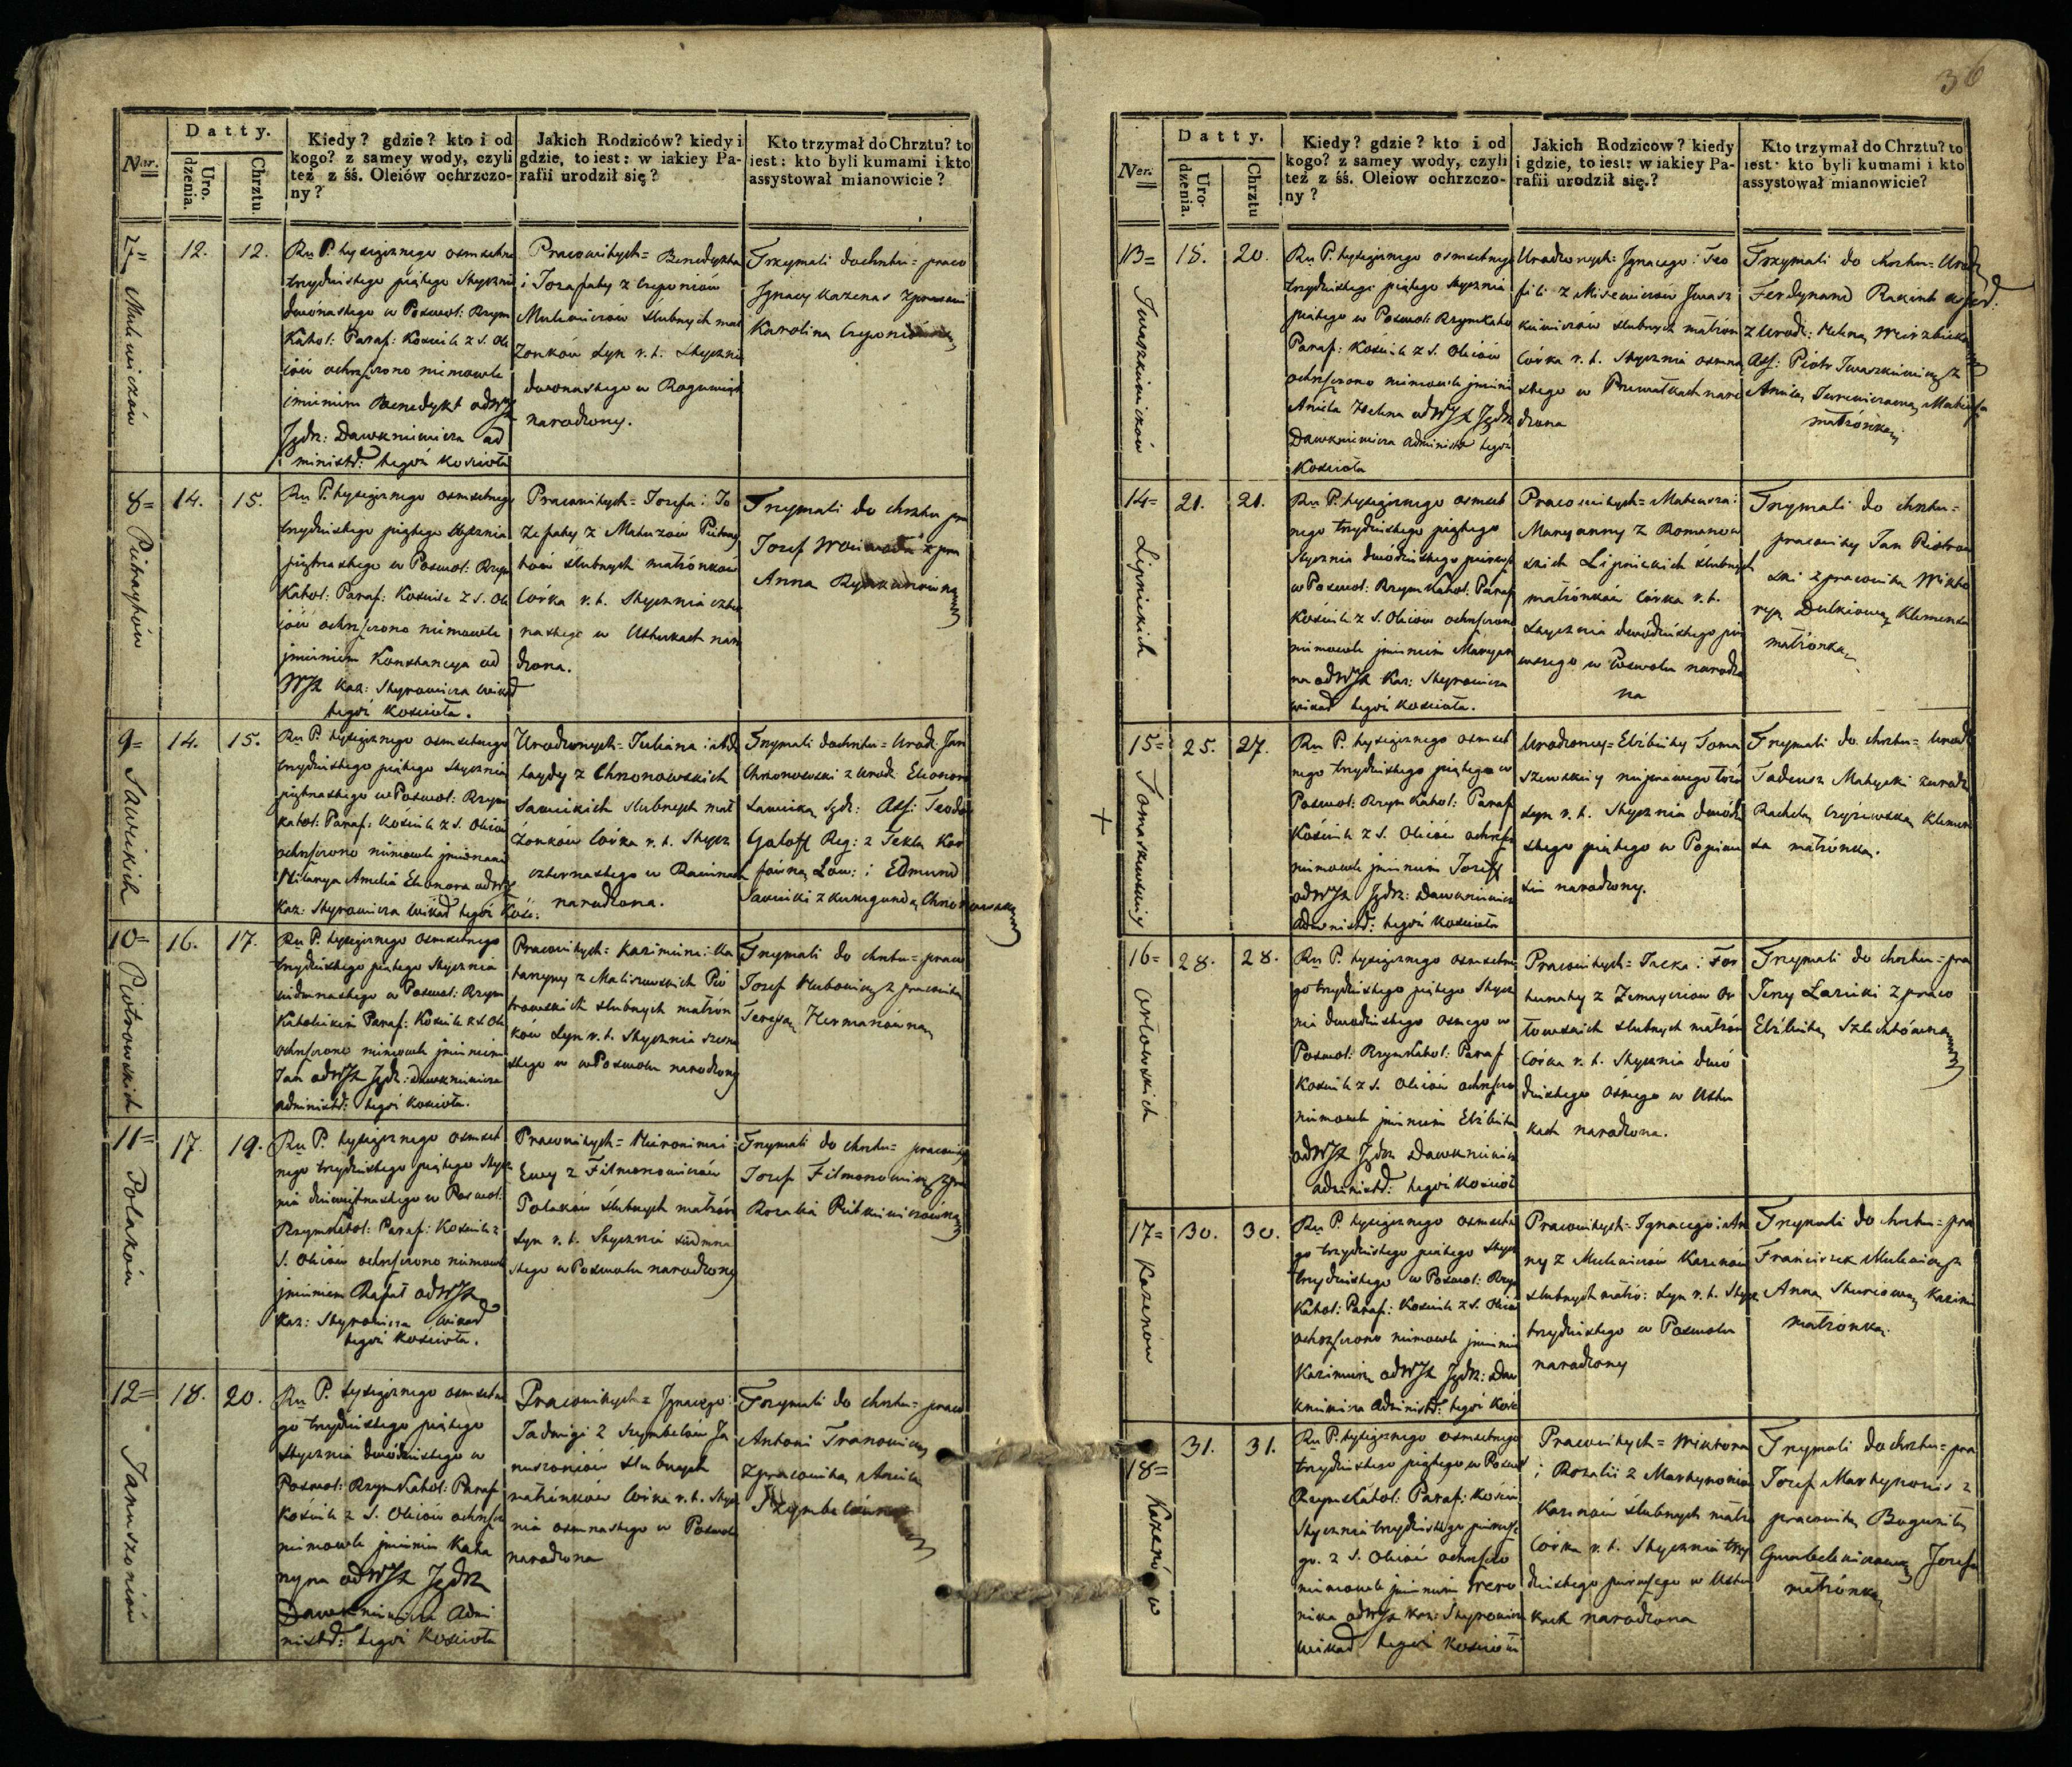 Datty.
Nar.
Uro.
dzenia.
Chrztu.
Kiedy? gdzie? kto i od
kogo? z samey wody, czyli
też z śś. Oleiów ochrzczo-
ny?
Jakich Rodziców? kiedy i
gdzie, to iest: w iakiey Pa-
rafii urodził się?
Kto trzymał do Chrztu? to
iest: kto byli kumami i kto
assystował mianowicie?
7=
12.
12.
Ru P. tysiącznego osmsetne
trzydziestego piątego Stycznia
dwónastego w Poswol: Rzym
Kathol: Paraf: Kościele z S. Ole
iów ochrzczono niemowle
imieniem Benedykt od WJX
Jędrz: Dawkniewicza ad
ministr: tegoż Kościoła
Pracowitych= Benedykta
i Jozafaty z
ślubnych mał
żonków Syn r. t. Stycznia
dwonastego w
narodzony.
Trzymali do chrztu= praco
Jgnacy Kazenas z pracowi
Karolina
8= Pietraytów
14.
15.
Ru P. tysiącznego osmsetnego
trzydziestego piątego Stycznia
piętnastego w Poswol: Rzym
Kathol: Paraf: Kościele z S. Ole
iów ochrzczono niemowle
jmieniem Konstancya od
WJX Kaz: Styrowicza Wikar
tegoż Kościoła.
Pracowitych= Jozefa i Jo
zefaty z
tów ślubnych małżonków
Córka r. t. Stycznia czter
nastego w Ustukach naro
dzona.
Trzymali do chrztu pra
Jozef z pra
Anna
9= Sawickich
14.
15.
Ru P. tysiącznego osmsetnego
trzydziestego piątego Stycznia
piętnastego w Poswol: Rzym
Kathol: Paraf: Kościele z S. Oleiów
ochrzczono niemowle jmionami
Hilarya Amelia Eleonora od WJX
Kaz: Styrowicza Wikar tegoż Kość:
Urodzonych= Juliana i Ade
laydy z Chrzonowskich
Sawickich ślubnych mał
żonków Córka r. t. Stycz
czternastego w
narodzona.
Trzymali do chrztu= Urodz. Jan
Chrzonowski z Urodz: Eleonorą
Sawicką Sędz: Ass: Teodor
Galoff Reg: z Teklą
i Edmund
Sawicki z Kunegundą Chrzonowską
10= Piotrowskich
16.
17.
Ru P. tysiącznego osmsetnego
trzydziestego piątego Stycznia
siedmnastego w Poswol: Rzym
Katholickim Paraf: Kościele z S. Ole
ochrzczono niemowle jmieniem
Jan od WJX Jędr: Dawkniewicza
administr: tegoż Kościoła.
Pracowitych= Kazimierza i Ka
tarzyny z Maliszewskich Pio
trowskich ślubnych małżon
ków Syn r. t. Stycznia szesna
stego w w Poswolu narodzony
Trzymali do chrztu= praco
Jozef z pracowitą
Teresą Hermanówną
11= Polaków
17.
19.
Ru P. tysiącznego osmset
nego trzydziestego piątego Stycz
nia dziewiętnastego w Poswol:
Rzym Kathol: Paraf: Kościele z
S. Oleiów ochrzczono niemowle
jmieniem Rafał od WJX
Kaz: Styrowicza Wikar
tegoż Kościoła.
Pracowitych= Hieronima i
Ewy z Filmonowiczów
Polaków ślubnych małżon
Syn r. t. Stycznia siedmna
stego w Poswolu narodzony
Trzymali do chrztu= pracowity
Jozef Filmonowicz z pra
Rozalia
12= Januszoniów
18.
20.
Ru P. tysiącznego osmsetne
go trzydziestego piątego
Stycznia dwódziestego w
Poswol: Rzym Kathol: Paraf
Kościele z S. Oleiów ochrzczo
niemowle jmieniem Kata
rzyna od WJX Jędrz
Dawkniewicza Admi
nistr: tegoż Kościoła
Pracowitych= Jgnacego i
Jadwigi z Szymbelów Ja
nuszoniów ślubnych
małżonków Córka r. t. Stycz
nia osmnastego w Poswolu
narodzona
Trzymali do chrztu= praco
Antoni
z pracowitą Anielą
Szymbelówną
36
Datty.
Ner.
Uro-
dzenia.
Chrztu
Kiedy? gdzie? kto i od
kogo? z samey wody, czyli
też z śś. Oleiow ochrzczo-
ny?
Jakich Rodziców? kiedy
i gdzie, to iest: w iakiey Pa-
rafii urodził się.?
Kto trzymał do Chrztu? to
iest: kto byli kumami i kto
assystował mianowicie?
13= Jwaszkiewiczów
18.
20.
Ru P. tysiącznego osmsetnego
trzydziestego piątego Stycznia
piątego w Poswol: Rzym Katho
Paraf: Kościele z S. Oleiów
ochrzczono niemowle jmieni
Aniela Helena od WJX Jędrz
Dawkniewicza administr tegoż
Kościoła
Urodzonych= Jgnacego i Teo
fili z Jwasz
kiewiczów ślubnych małżon
Córka r. t. Stycznia osmna
stego w naro
dzona
Trzymali do chrztu= Urodz
Ferdynand
z Urodz: Heleną Wierzbicką
Ass: Piotr Jwaszkiewicz z
Anielą
małżonką
14= Lipnickich
21.
21.
Ru P. tysiącznego osmset
nego trzydziestego piątego
Stycznia dwódziestego pierwsz
w Poswol: Rzym Kathol: Paraf
Kościele z S. Oleiów ochrzczono
niemowle jmieniem Maryan
na od WJX Kaz: Styrowicza
wikar tegoż Kościoła.
Pracowitych= Mateusza i
Maryanny z Romanow
skich Lipnickich ślubnych
małżonków Córka r. t.
Stycznia dwódziestego pier
wszego w Poswolu narodzo
na
Trzymali do chrztu=
pracowity Jan Piotrow
ski z pracowitą Wikto
ryą Klemensa
małżonką
15= Tomaszewskiey
+
25.
27.
Ru P. tysiącznego osmset
nego trzydziestego piątego w
Poswol: Rzym Kathol: Paraf
Kościele z S. Oleiów ochrzczo
niemowle jmieniem Jozeff
od WJX Jędrz: Dawkniewicza
administr: tegoż Kościoła
Urodzoney= Elżbiety Toma
szewskiey nieprawego łoża
Syn r. t. Stycznia dwódzie
stego piątego w
narodzony.
Trzymali do chrztu= Urodz
Tadeusz z Urodz
Rachelą Klemen
sa małżonką.
16= Orłowskich
28.
28.
Ru P. tysiącznego osmsetne
go trzydziestego piątego Stycz
nia dwódziestego osmego w
Poswol: Rzym Kathol: Paraf
Kościele z S. Oleiów ochrzczo
niemowle jmieniem Elżbieta
od WJX Jędrz Dawkniewicz
administr: tegoż Kościoł
Pracowitych= Jacka i For
tunaty z Or
łowskich ślubnych małżon
Córka r. t. Stycznia dwó
dziestego ósmego w Ustu
kach narodzona.
Trzymali do chrztu= pra
Jerzy z praco
Elżbietą Szlachtówną
17= Kazenów
30.
30.
Ru P. tysiącznego osmsetne
go trzydziestego piątego Stycz
trzydziestego w Poswol: Rzym
Kathol: Paraf: Kościele z S. Oleiów
ochrzczono niemowle jmieniem
Kazimierz od WJX Jędrz: Daw
kniewicza administr: tegoż Kość
Pracowitych= Jgnacego i An
ny z Kazenów
ślubnych małżo: Syn r. t. Stycz
trzydziestego w Poswolu
narodzony
Trzymali do chrztu= pra
Franciszek
Anną Kazimie
małżonką.
18= Kazenów
31.
31.
Ru P. tysiącznego osmsetnego
trzydziestego piątego w Poswol
Rzym Kathol: Paraf: Kościele
Stycznia trzydziestego pierwsze
go. z S. Oleiów ochrzczo
niemowle jmieniem Wero
nika od WJX Kaz: Styrowicza
wikar tegoż Kościoła
Pracowitych= Wiktora
i Rozalii z Martynoniów
Kazenów ślubnych małżo
Córka r. t. Stycznia trzy
dziestego pierwszego w Ustu
kach narodzona
Trzymali do chrztu= pra
Jozef Martynonis z
pracowitą
Jozefa
małżonką